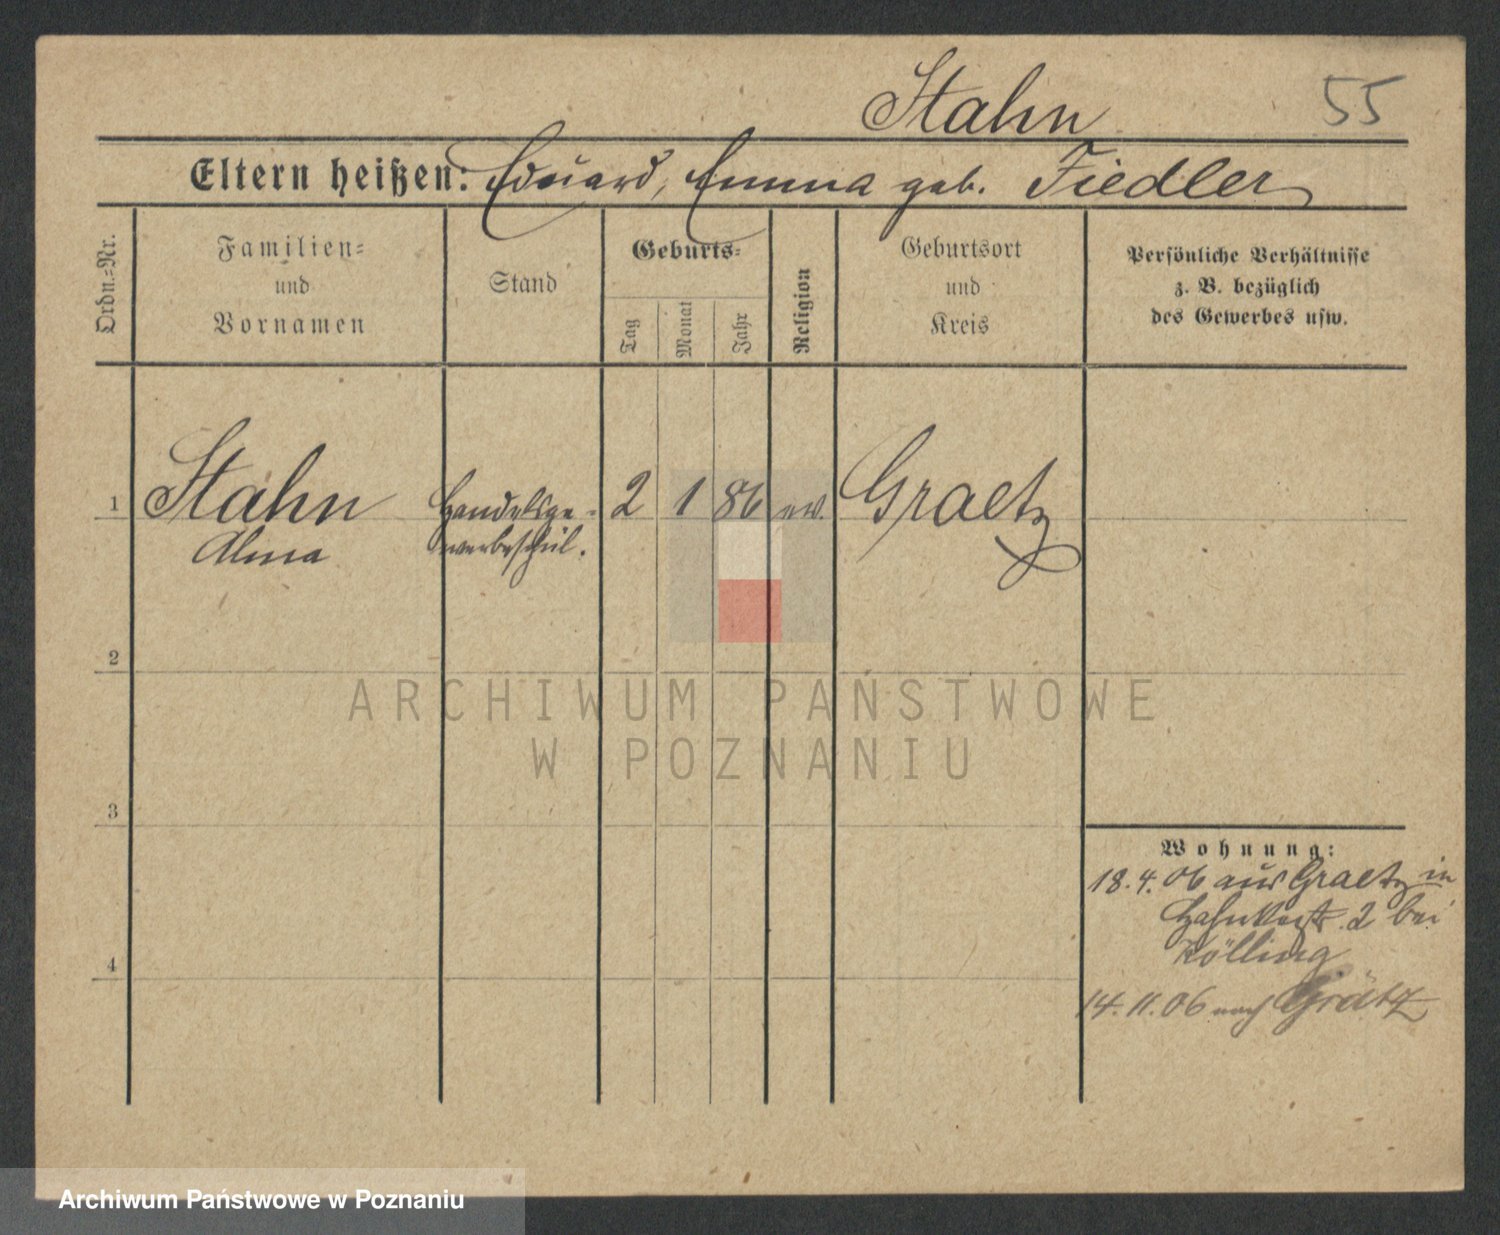 Stahn
55
Eltern heißen: Eduard, Emma geb. Fiedler
Ordn.=Nr.
Familien=
und
Vornamen
Stand
Geburts=
Tag
Monat
Jahr
Religion
Geburtsort
und
Kreis
Persönliche Verhältnisse
z. B. bezüglich
des Gewerbes usw.
1 Stahn Handelsge- 2 1 86 ev. Graetz
Alma werbeschül.
2
3
4
Wohnung:
18.4.06 aus Graetz in
2 bei
Kölling
14.11.06 nach Grätz
ARCHIWUM PAŃSTWOWE
W POZNANIU
Archiwum Państwowe w Poznaniu